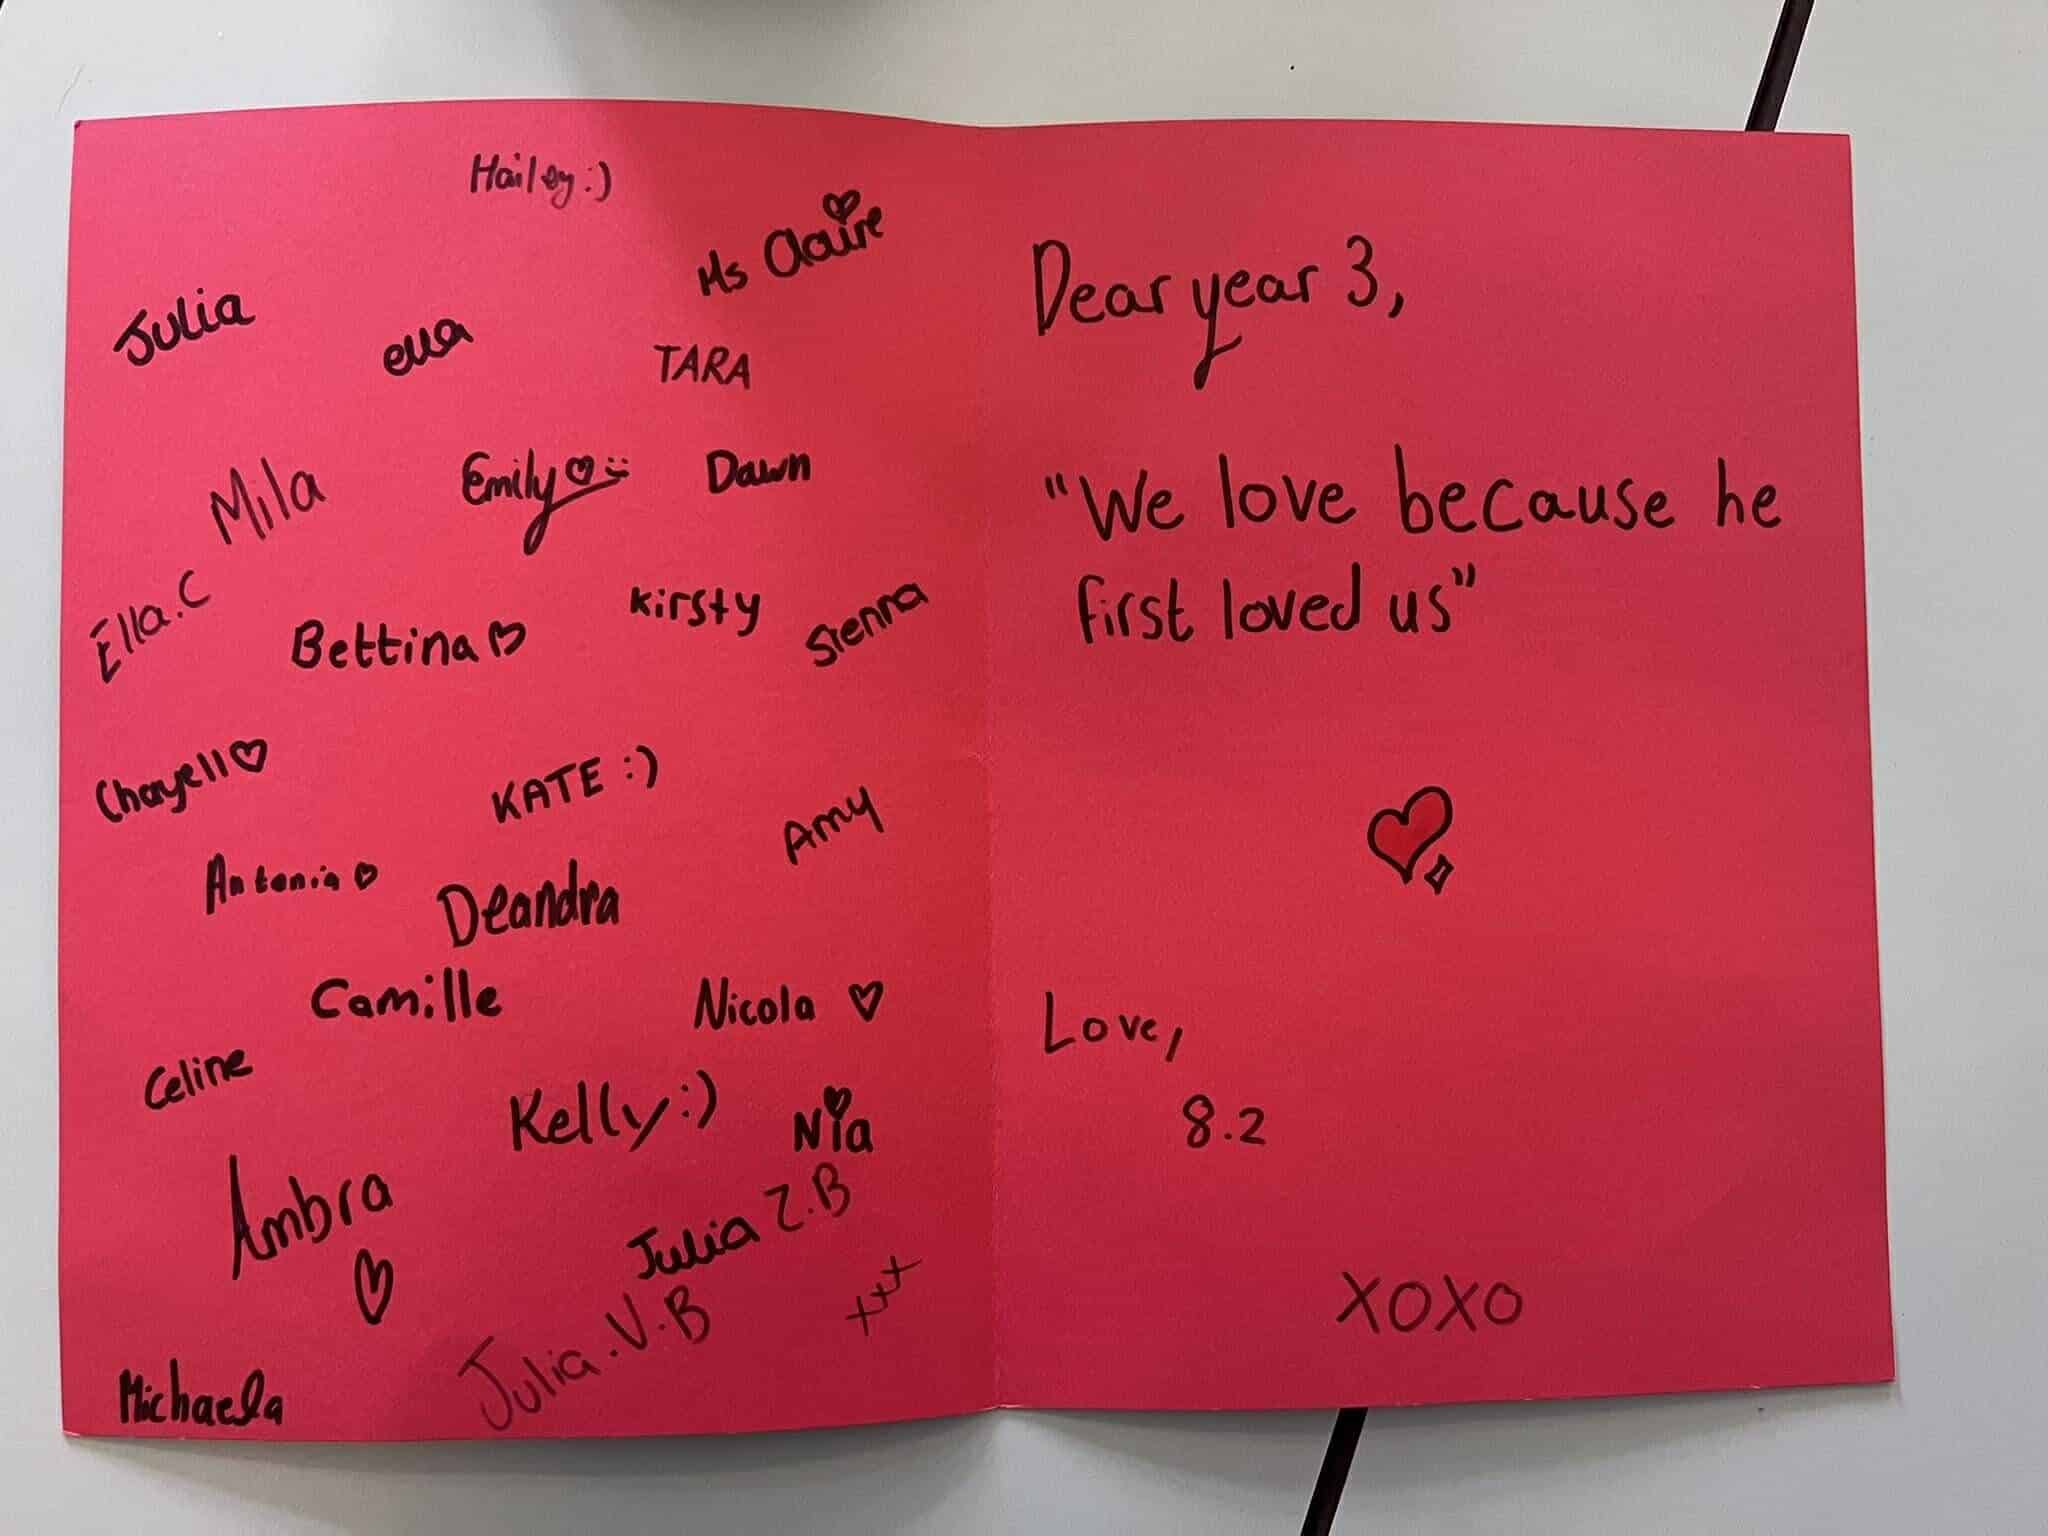 Hailey :)
Ms Claire
Julia
ella
TARA
Mila
Emily
Dawn
Ella.C
Bettina
Kirsty
Sienna
Chayell
KATE :)
Amy
Antonia
Deandra
Camille
Nicola
Celine
Kelly :)
Nia
Ambra
Julia Z.B
Julia.V.B
xxx
Michaela
Dear year 3,
"We love because he
first loved us"
Love,
8.2
XOXO